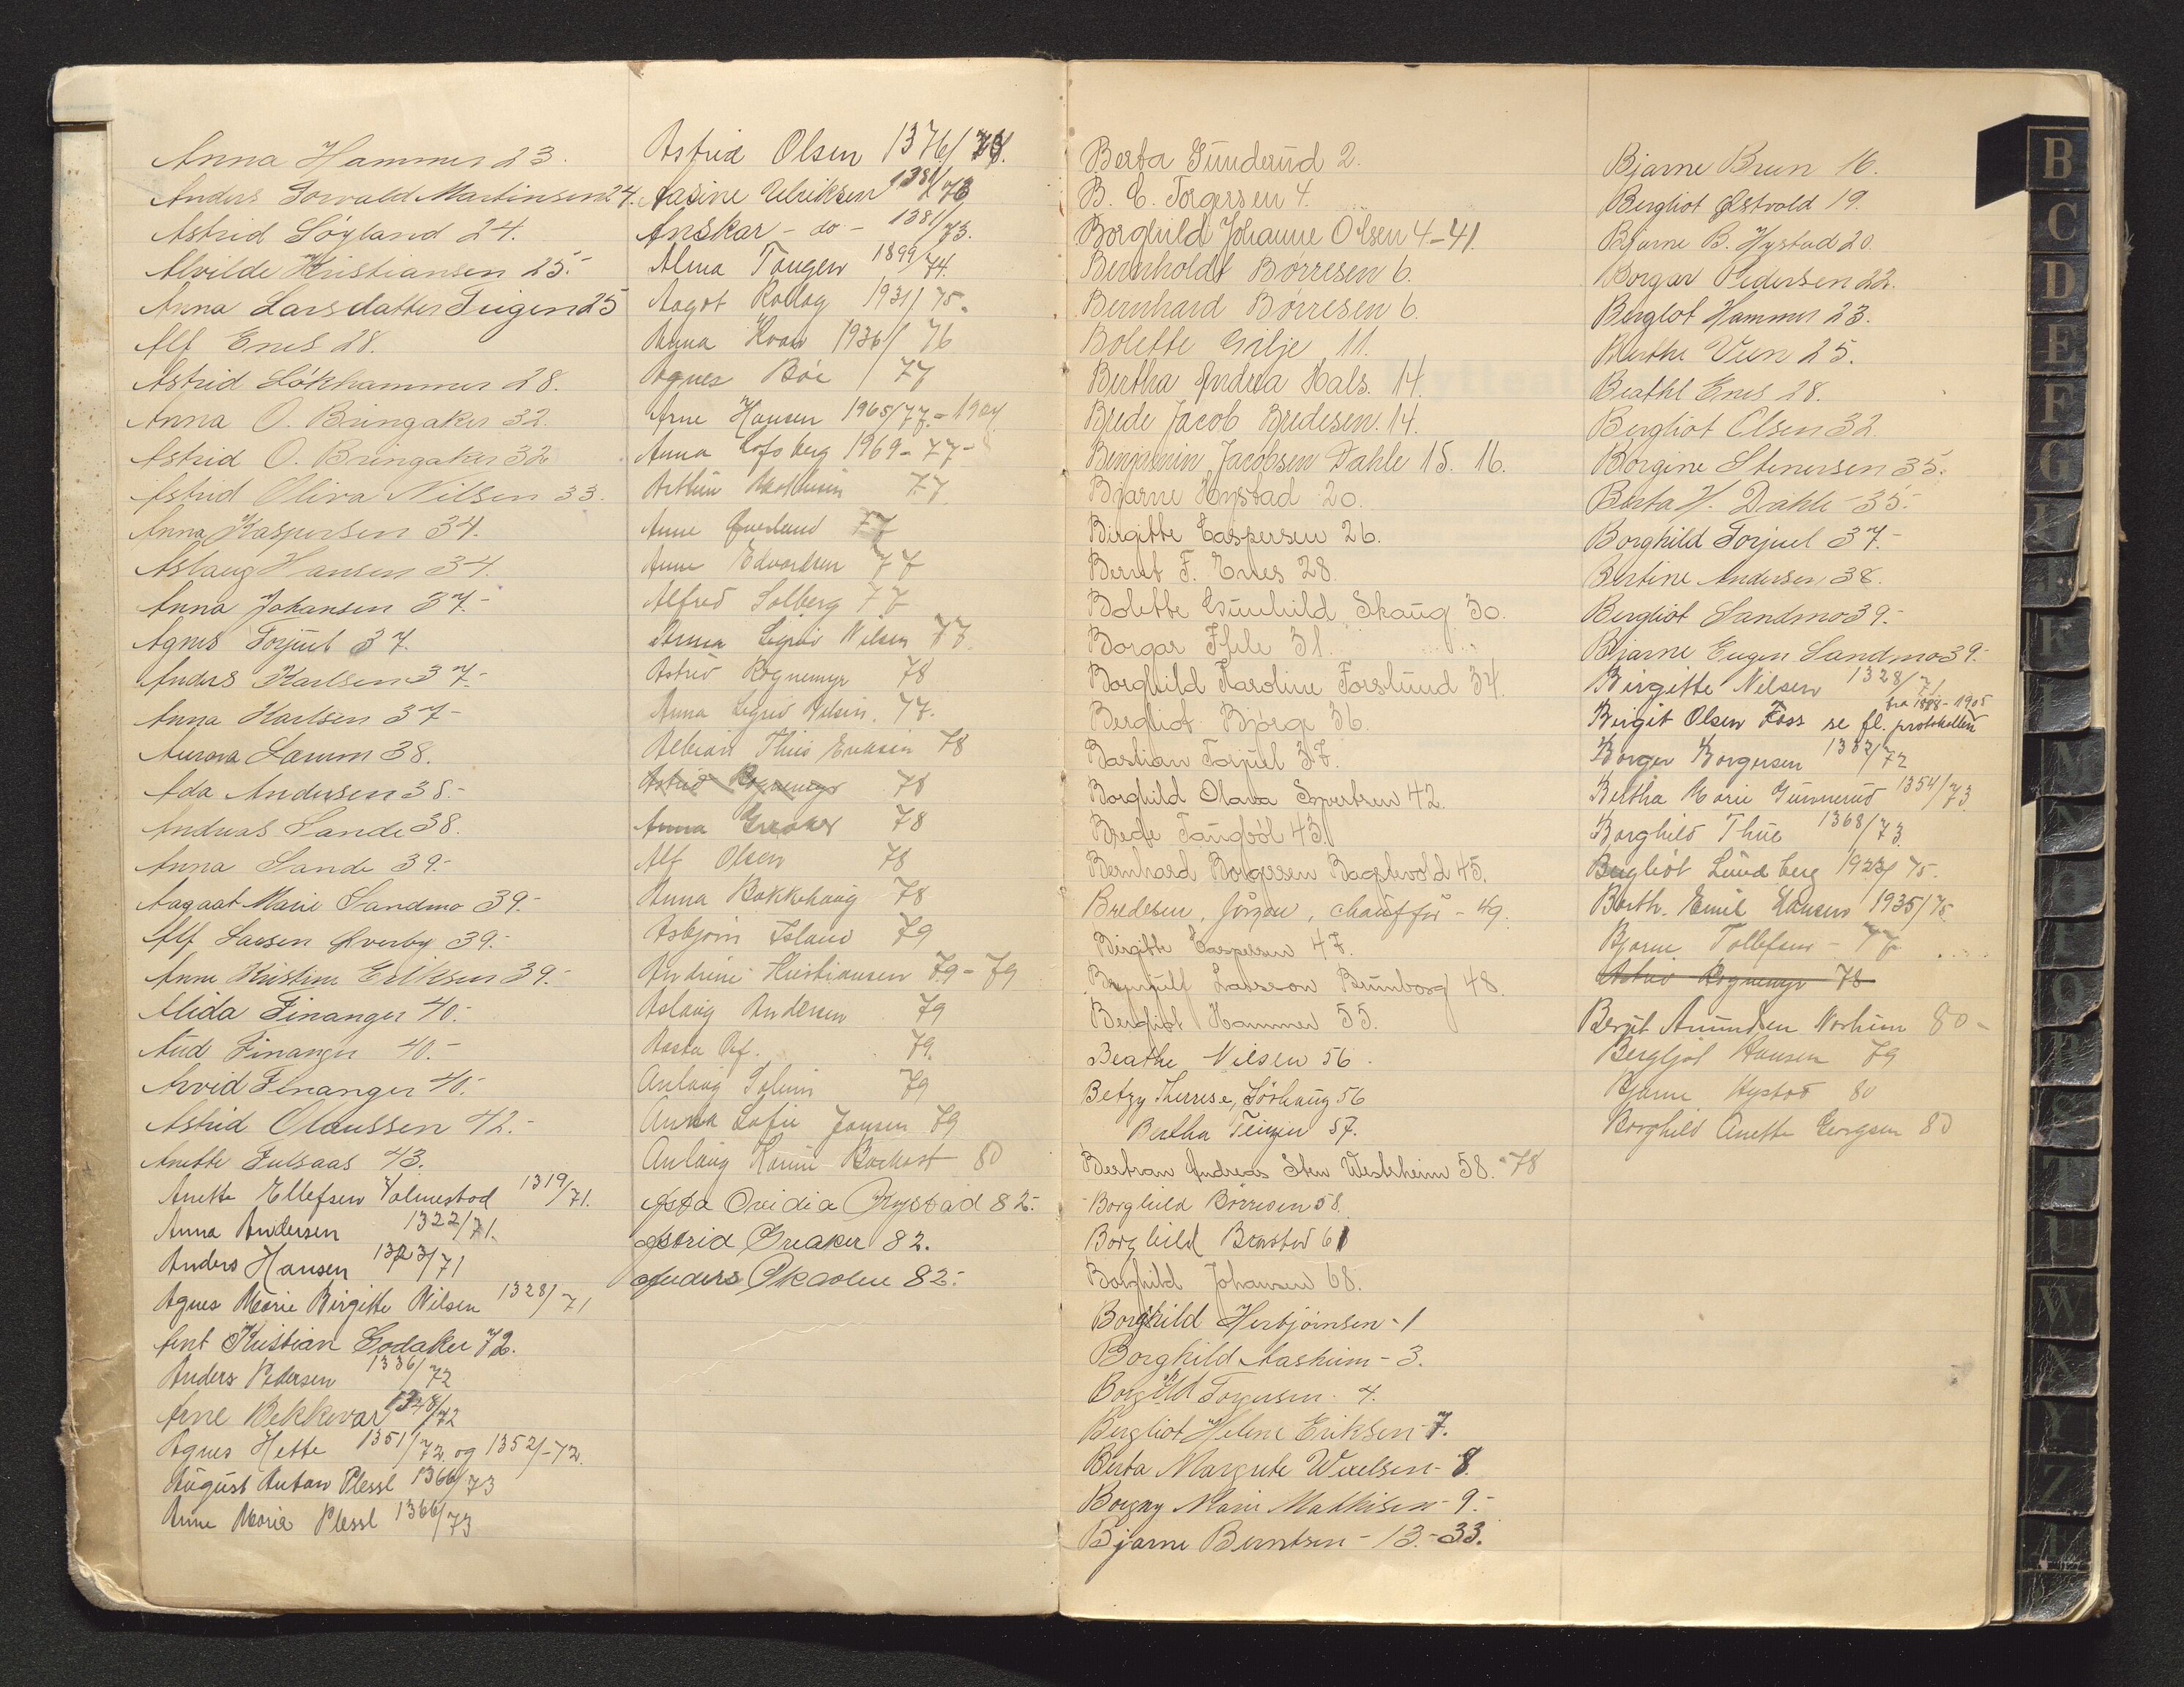 Anna Hammer 23.
Anders Torvald Martinsen 24.
Astrid Söyland 24.
Alvilde Kristiansen 25.-
Anna Larsdatter Teigen 25
Alf Enes 28.
Astrid Lökhammer 28.
Anna O. Bringaker 32.
Astrid O. Bringaker 32
Astrid Oliva Nilsen 33.
Anna Kaspersen 34.
Aslaug Hansen 34.
Anna Johansen 37.-
Agnes Torjul 37.
Anders Karlsen 37.-
Anna Karlsen 37-
Aurora Larum 38.
Ada Andersen 38.-
Andreas Sande 38.
Anna Sande 39.-
Aagaat Marie Sandmo 39.-
Alf Larsen Øverby 39.-
Anne Kristine Eriksen 39.-
Alida Finanger 40.-
Aud Finanger 40.-
Arvid Finanger 40.-
Astrid Olaussen 42.-
Anette Julsaas 43.
Anette Ellefsen Valmestad 1319/71.
Anna Andersen 1322/71.
Anders Hansen 1323/71
Agnes Marie Birgitte Nilsen 1328/71
Arnt Kristian Godaker 72.
Anders Pedersen 1336/72
Arne Bekkevar 1348/72
Agnes Hette 1351/72 og 1352/-72.
August Anton Plessl 1366/73
Anne Marie Plessl 1366/73
Astrid Olsen 1376/73.
Aasine Ulriksen 1381/73
Anskar - do - 1381/73.
Alma Tangen 1899/74.
Aagot Kollag 1931/75.
Anna Hoan 1936/76
Agnes Böe / 77
Arne Hansen 1965/77.-1904
Anna Lofsberg 1969-77-
77
Anne Øverland 77
Anne Edvardsen 77
Alfred Solberg 77
Sigrid Nilsen 77.
Astrid Rognemyr 78
Anna Sigrid Nilsen. 77.
Thiis Eriksen 78
Astrid Rognemyr 78
Anna Greaker 78
Alf Olsen 78
Anna Bakkehaug 78
Asbjörn Island 79
Andrine Kristiansen 79-79
Aslaug Andersen 79
Aasta 79.
Solum 79
Anna Sofie Jansen 79
Karine 80
Asta Ovidia Rystad 82.-
Astrid Greaker 82.
Anders Skaolen 82.-
Berta Gunderud 2.
B. C. Torgersen 4.
Borghild Johanne Olsen 4.-41.
Bernholdt Börresen 6.
Bernhard Börresen 6.
Bolette Gilje 11.
Bertha Andrea Hals. 14.
Brede Jacob Bredesen. 14.
Benjamin Jacobsen Dahle 15. 16.
Bjarne Hystad 20.
Birgitte Caspersen 26.
Bernt F. Enes 28.
Bolette Gunhild Skaug 30.
Borgar Ihle 31.
Borghild Karoline Forslund 34.
Bergliot Björge 36.
Bastian Torjul 37.
Borghild Olava Syvertsen 42.
Brede Taugböl 43.
Bernhard Borgersen Bagstevold 45.
Bredesen, Jörgen, chauffør - 49.
Birgitte Caspersen 47.
Brynjulf Larsson Brunborg 48.
Bergliot Hammer 55.
Beathe Nilsen 56.
Betzy Therese, Sörhaug 56
Bertha Teigen 57.
Bertran Andreas Sten Westerheim 58.-78
Borghild Börresen 58.
Borghild Brastad 61
Borghild Johansen 68.
Borghild Herbjörnsen - 1
Borghild Aasheim - 3.
Borghild Torgersen - 4.
Bergliot Helene Eriksen - 7.
Berta Margrete Wiielsen - 8.
Borgny Marie Mathisen - 9.-
Bjarne Berntsen - 13.-33.
Bjarne Brun 16.
Bergliot Østvold 19.
Bjarne B. Hystad 20.
Borgar Pedersen 22.
Berglot Hammer 23.
Berthe Veen 25.
Beathl Enes 28.
Bergliot Olsen 32.
Borgine Stenersen 35.-
Berta H. Dahle - 35.-
Borghild Torjuul 37.-
Bertine Andersen 38.
Bergliot Sandmo 39.-
Bjarne Eugen Sandmo 39.-
Birgitte Nilsen 1328/71
fra 1898-1905
Birgit Olsen Foss se fl. protokollen
Borger Borgersen 1332/72
Beltha Marie Gunnerud 1354/73.
Borghild Thue 1368/73.
Bergliot Lundberg 1923/75.-
Berth. Emil Hansen 1935/75
Bjarne Tollefsen - 77
Astrid Rognemyr 78
Bernt Amundsen Norheim 80-
Bergljot Hansen 79
Bjarne Hystad 80
Borghild Anette Georgsen 80
B
C
D
E
F
G
K
L
M
N
P
U
W
X
Y
Z